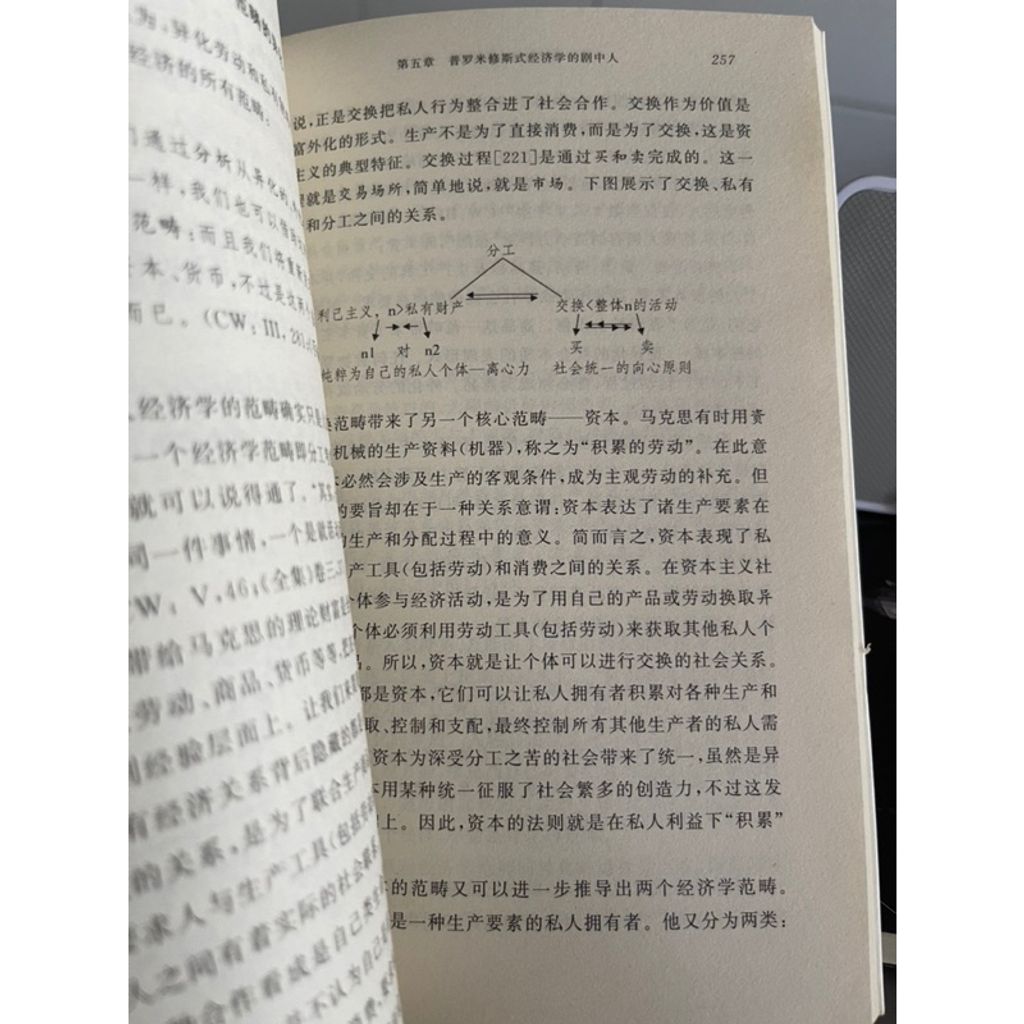 范畴的
为，异化劳动和私有
经济的所有范畴：
们通过分析从异化的
一样，我们也可以借助
范畴；而且我们将重新
本、货币，不过是这两
而已。（CW：III，281
经济学的范畴确实只是
一个经济学范畴即分工
就可以说得通了。“其实
同一件事情，一个是就活动
CW：V，46；《全集》卷三
带给马克思的理论财富是
劳动、商品、货币等等，
经验层面上。让我们来
有经济关系背后隐藏的那
的关系，是为了联合生产
求人与生产工具（包括劳
人之间有着实际的社会联系
合作看成是自己类
并不认为自己
第五章 普罗米修斯式经济学的剧中人 257
说，正是交换把私人行为整合进了社会合作。交换作为价值是
富外化的形式。生产不是为了直接消费，而是为了交换，这是资
主义的典型特征。交换过程[221]是通过买和卖完成的。这一
就是交易场所，简单地说，就是市场。下图展示了交换、私有
和分工之间的关系。
分工
利己主义，n>私有财产 交换<整体n的活动
n1 对 n2 买 卖
纯粹为自己的私人个体—离心力 社会统一的向心原则
范畴带来了另一个核心范畴——资本。马克思有时用贵
机械的生产资料（机器），称之为“积累的劳动”。在此意
必然会涉及生产的客观条件，成为主观劳动的补充。但
的要旨却在于一种关系意谓：资本表达了诸生产要素在
生产和分配过程中的意义。简而言之，资本表现了私
产工具（包括劳动）和消费之间的关系。在资本主义社
个体参与经济活动，是为了用自己的产品或劳动换取异
个体必须利用劳动工具（包括劳动）来获取其他私人个
品。所以，资本就是让个体可以进行交换的社会关系。
都是资本，它们可以让私人拥有者积累对各种生产和
取、控制和支配，最终控制所有其他生产者的私人需
资本为深受分工之苦的社会带来了统一，虽然是异
本用某种统一征服了社会繁多的创造力，不过这发
上。因此，资本的法则就是在私人利益下“积累”
的范畴又可以进一步推导出两个经济学范畴。
是一种生产要素的私人拥有者。他又分为两类：